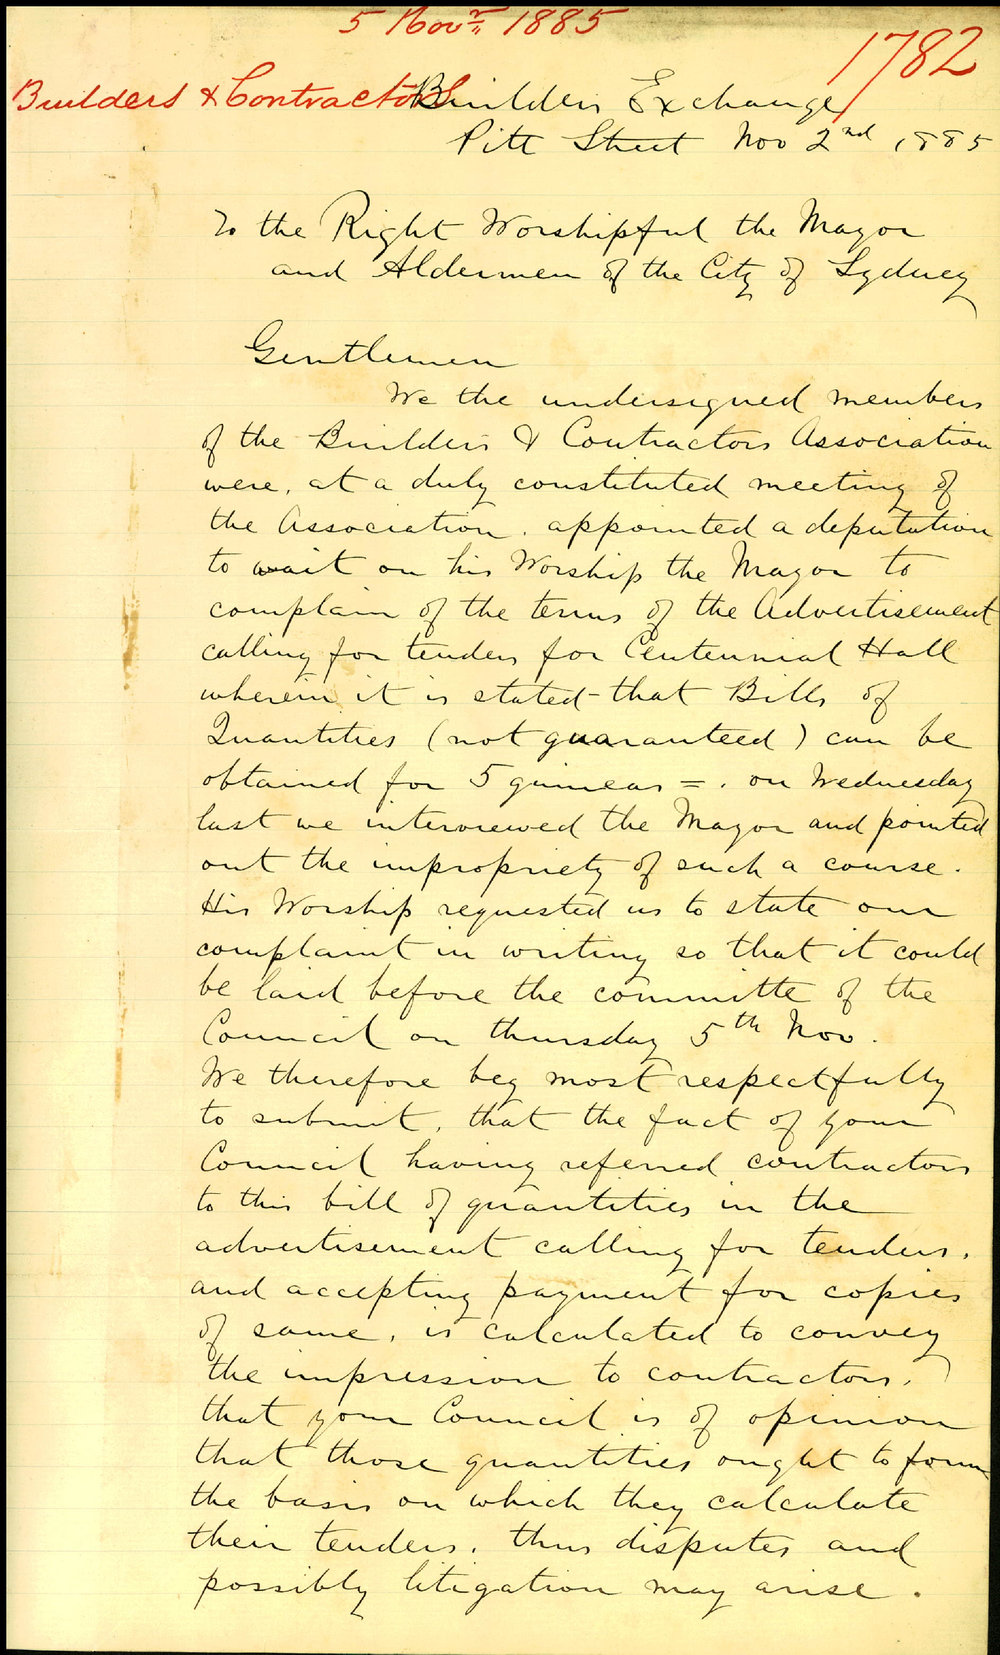 5 Novr 1885
1782
Builders & Contractors
Builders Exchange
Pitt Street Nov 2nd 1885
To the Right Worshipful the Mayor
and Aldermen of the City of Sydney
Gentlemen
We the undersigned members
of the Builders & Contractors Association
were, at a duly constituted meeting of
the Association. appointed a deputation
to wait on his Worship the Mayor to
complain of the terms of the Advertisement
calling for tenders for Centennial Hall
wherein it is stated that Bills of
Quantities (not guaranteed) can be
obtained for 5 guineas = . on Wednesday
last we interviewed the Mayor and pointed
out the impropriety of such a course.
His Worship requested us to state our
complaint in writing so that it could
be laid before the committe of the
Council on thursday 5th Nov.
We therefore beg most respectfully
to submit, that the fact of your
Council having referred contractors
to this bill of quantities in the
advertisement calling for tenders,
and accepting payment for copies
of same, is calculated to convey
the impression to contractors,
that your Council is of opinion
that those quantities ought to form
the basis on which they calculate
their tenders. thus disputes and
possibly litigation may arise.